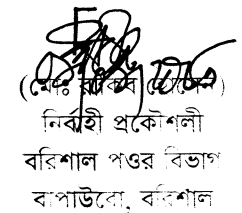 (মোঃ রাকিব হোসেন)
নির্বাহী প্রকৌশলী
বরিশাল পওর বিভাগ
বাপাউবো, বরিশাল